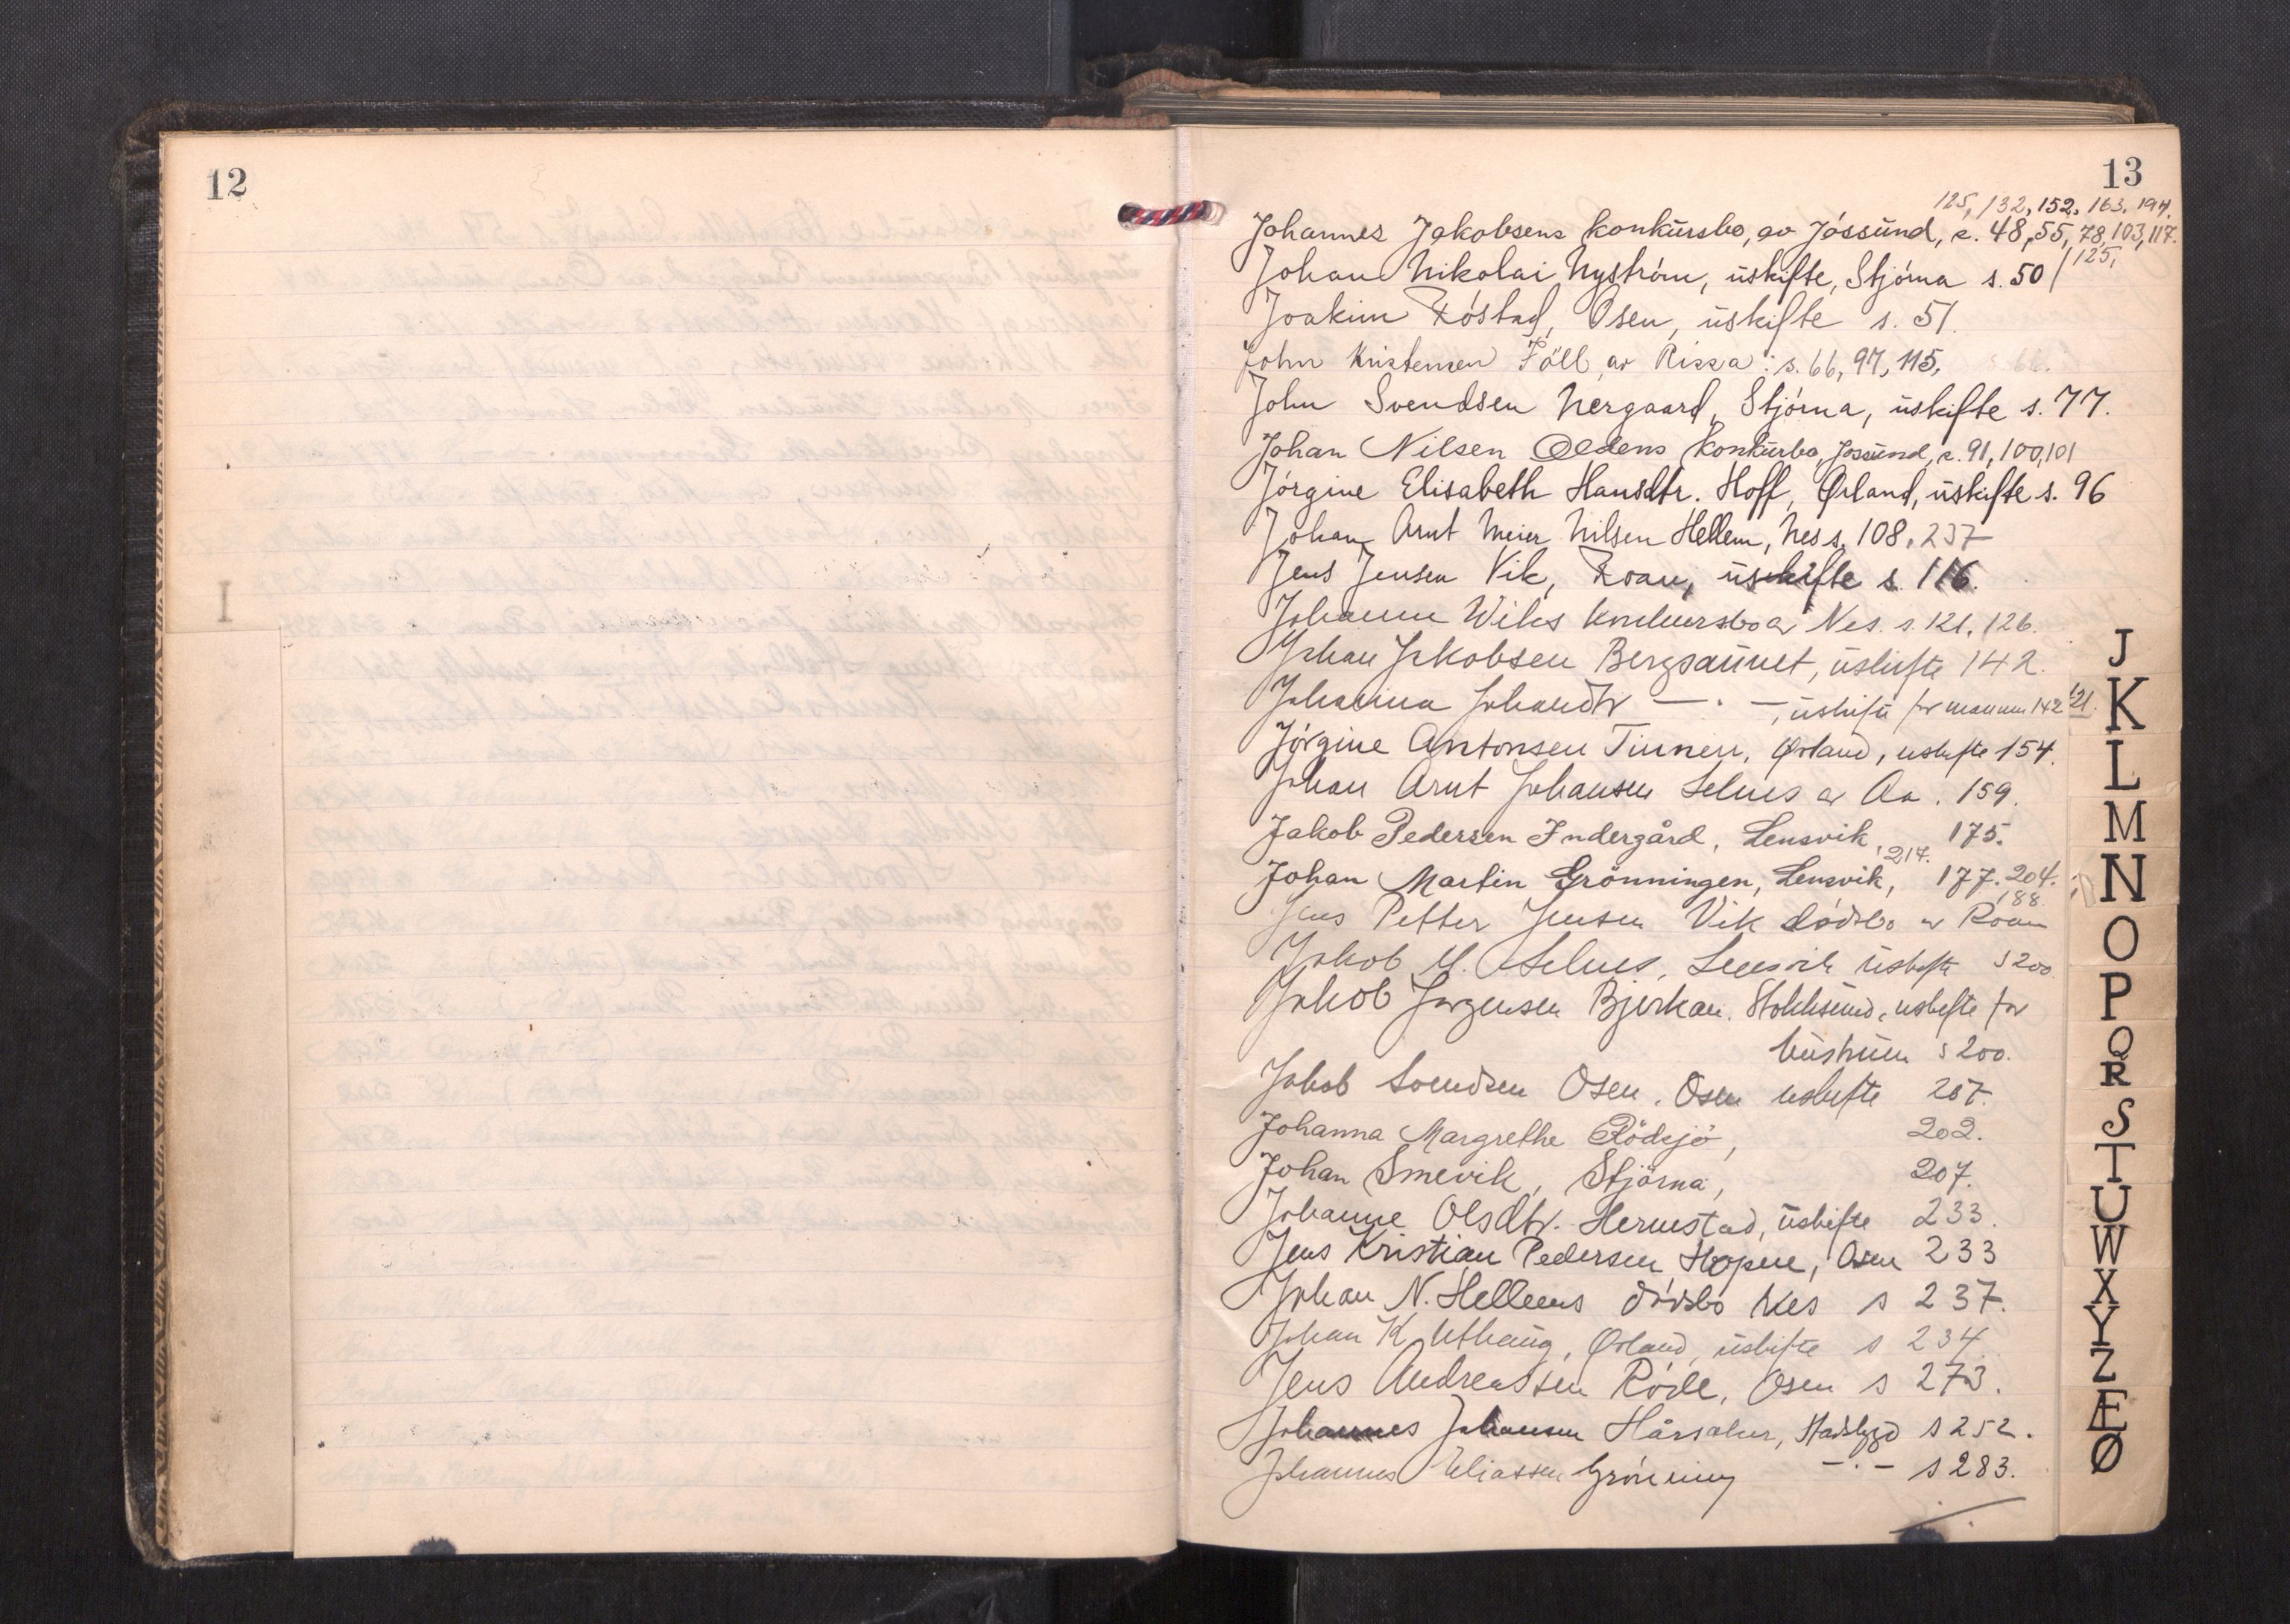 12
I
13
125, 132, 152, 163, 194.
Johannes Jakobsens konkursbo, av Jössund, s. 48, 55, 78, 103, 117.
125,
Johan Nikolai Nyström, uskifte, Stjörna s. 50
Joakim Röstad, Osen, uskifte s. 51.
John Kristensen Föll av Rissa: s. 66, 97, 115,
John Svendsen Nergaard, Stjörna, uskifte s. 77.
Johan Nilsen Oldens Konkurbo, Jössund, s. 91, 100, 101
Jörgine Elisabeth Hansdtr. Hoff, Ørland, uskifte s. 96
Johan Arnt Meier Nilsen Hellem, Nes s. 108, 237
Jens Jensen Vik, Roan, uskifte s. 116.
Johann Wiks konkursbo av Nes. s. 121, 126.
Johan Jakobsen Bergsaunet, uskifte 142.
Johanna Johandtr — . —, uskifte for mannen 142 121.
Jörgine Antonsen Tinnen, Ørland, uskifte 154.
Johan Arnt Johansen Selnes av Aa. 159.
Jakob Pedersen Indergård, Lensvik, 175.
217.
Johan Martin Grönningen, Lensvik, 177. 204.
188.
Jens Petter Jensen Vik dödsbo av Roan
Jakob M. Selnes, Lensvik uskifte s 200
Jakob Jörgensen Bjerkan, Stokksund, uskifte for
hustruen s 200.
Jakob Svendsen Osen, Osen uskifte 207.
Johanna Margrethe Rödsjö, 202.
Johan Smevik, Stjörna, 207.
Johanne Olsdtr. Hernstad, uskifte 233.
Jens Kristian Pedersen Hopen, Osen 233
Johan N. Hellems dödsbo Nes s 237.
Johan K Uthaug, Ørland, uskifte s 234
Jens Andreassen Röde, Osen s 273.
Johannes Johansen Hårsaker, Stadsbygd s 252.
Johannes Eliassen Gröning — . — s 283.
J
K
L
M
N
O
P
Q
R
S
T
U
W
X
Y
Z
Æ
Ø